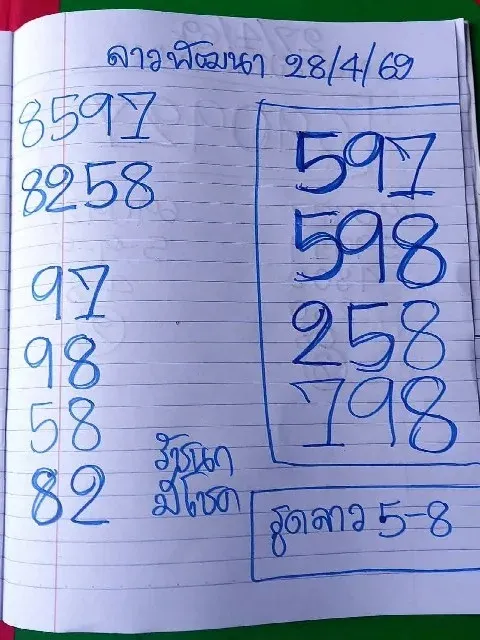 ลาวพัฒนา 28/4/69
8597
8258
97
98
58
82
597
598
258
798
มีโชค
รูดลาว 5-8